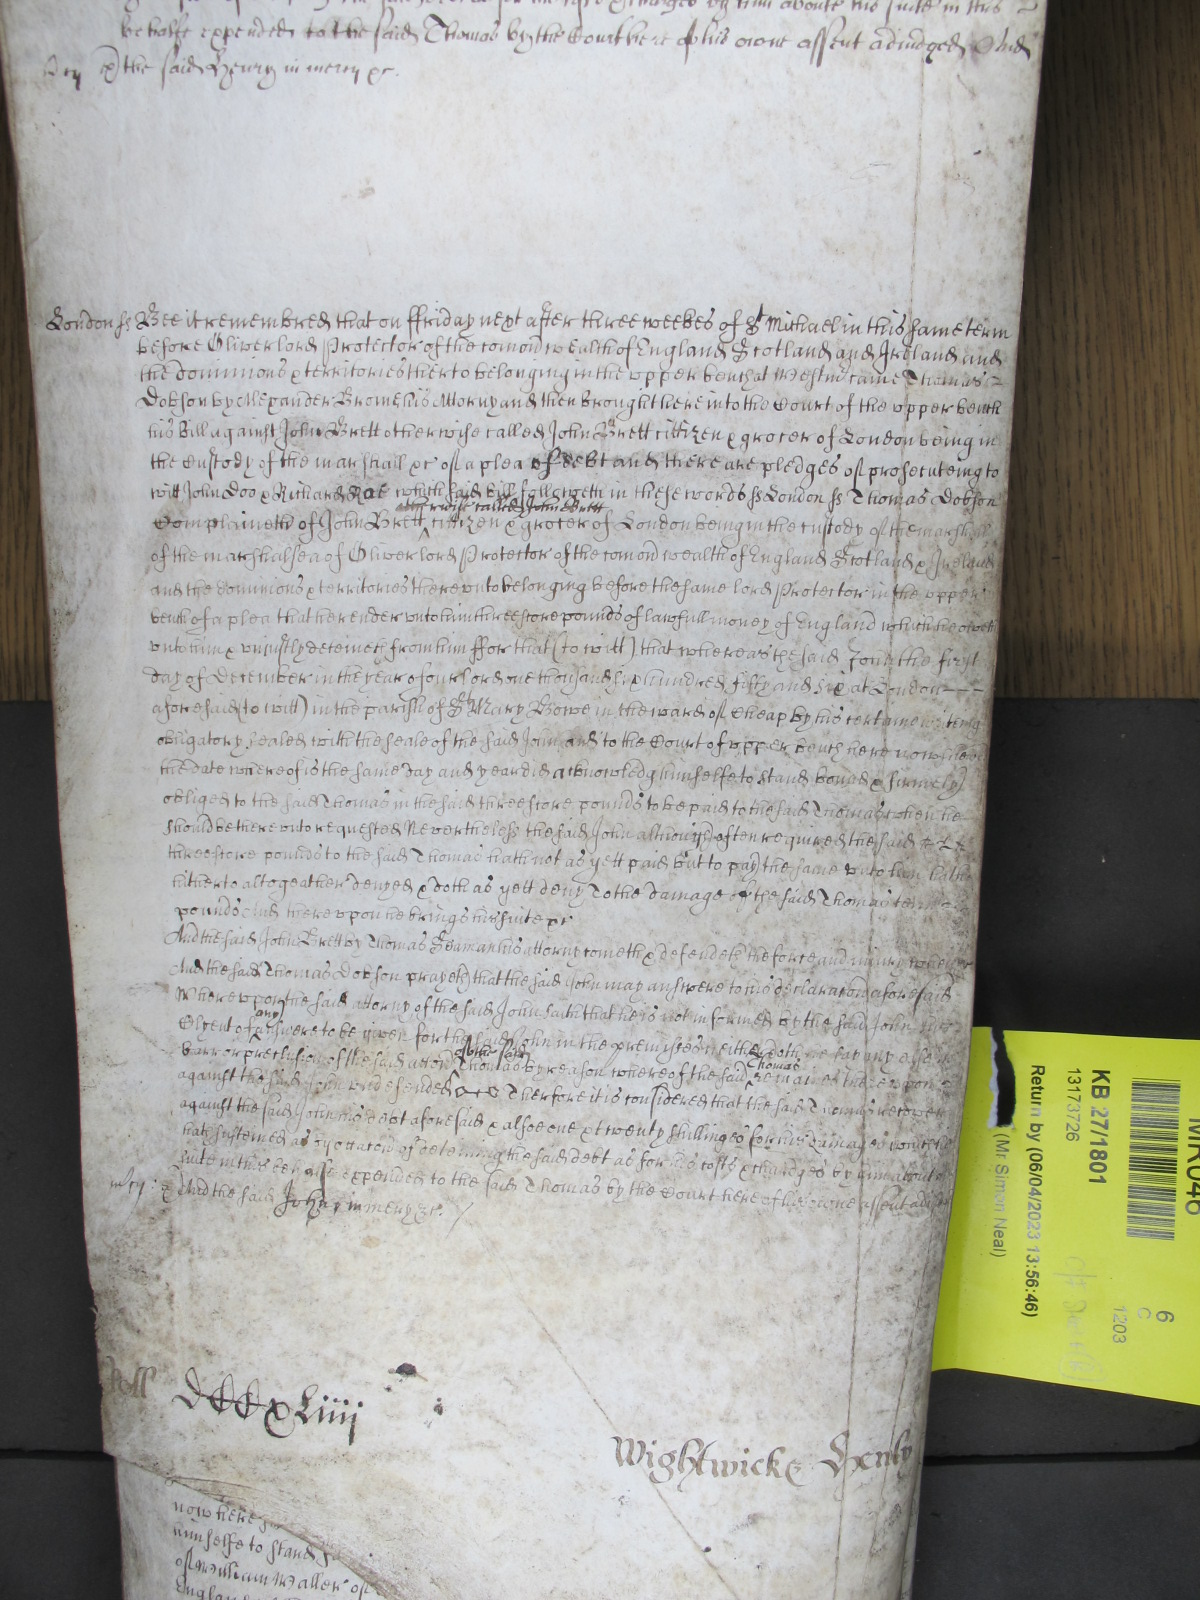 behalfe expended to the said Thomas by the Court here of his owne assent adiudged And
mcy the said Henry in mercy &c.
London ss Bee it remembred that on ffriday next after three weekes of St Michael in this same term
before Oliver lord Protector of the comon wealth of England Scotland and Ireland and
the dominions & territories therto belonging in the upper bench at Westmr came Thomas
Dobson by Alexander Brome his Attorny and then brought here into the Court of the upper bench
his bill against John Brett otherwise called John Brett cittizen & grocer of London being in
the Custody of the marshall &c of a plea of debt and there are pledges of prosecuteing to
witt John Doo & Richard Roe which said bill followeth in these words ss London ss Thomas Dobson
otherwise called John Brett
Complaineth of John Brett cittizen & grocer of London being in the custody of the marshall
of the marshalsea of Oliver lord Protector of the comon wealth of England Scotland & Ireland
and the dominions & territories thereunto belonging before the same lord Protector in the upper
bench of a plea that he render unto him threescore pounds of lawfull money of England which he oweth
unto him & uniustly deteineth from him ffor that (to witt) that whereas the said John the first
day of December in the year of our lord one thousand six hundred fifty and six at London
aforesaid (to witt) in the parish of St Mary Bowe in the ward of Cheap by his certaine writeing
obligatory sealed with the seale of the said John and to the Court of upper bench here now shewed
the date whereof is the same day and year did acknowledg himselfe to stand bound & firmely
obliged to the said Thomas in the said threescore pounds to be paid to the said Thomas when he
should be thereunto requested Nevertheless the said John although often required the said
threescore pounds to the said Thomas hath not as yett paid but to pay the same unto him hath
hitherto altogeather denyed & doth as yett deny To the damage of the said Thomas tenn
pounds And thereupon he brings his suite &c
And the said John Brett by Thomas Seaman his attorny cometh & defendeth the force and iniury when &c
And the said Thomas Dobson prayeth that the said John may answere to his declaration aforesaid
Whereupon the said attorny of the said John saith that he is not informed by the said John his
any
Clyent of answere to be given for the said John in the premisses neither doth he say any
of the said Thomas
barr or preclusion of the said action Thomas by reason whereof the said remaines thereupon
against the said John undefended &c Therefore it is considered that the said Thomas recover
against the said John his debt aforesaid & alsoe one & twenty shillinges for his damages which he
hath susteined as by occasion of deteining the said debt as for his costs & charges by him about
suite in this behalfe expended to the said Thomas by the Court here of his owne assent
mcy And the said John in mercy &c.
Roll DCCxLiiij
Wightwicke
now here
himselfe to stand
of William Waller of
England
MR046
KB 27/1801
13173726
Return by (06/04/2023 13:56:46)
(Mr Simon Neal)
6
C
1203